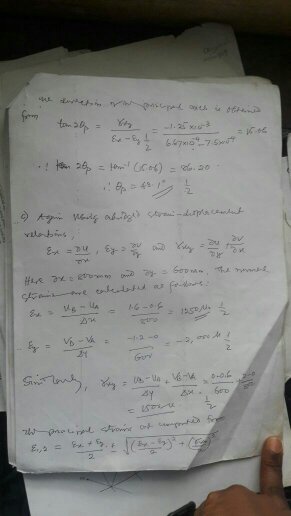 The direction of the principal axes is obtained
from
tan2θp = γxy / εx − εy = −1.25×10⁻³ / 6.67×10⁻⁴ − 7.5×10⁻⁴ = 15.06
1/2
∴ 2θp = tan⁻¹(15.06) = 86.20
∴ θp = 43.1° 1/2
c) Again using strain-displacement
relations,
εx = ∂u/∂x, εy = ∂v/∂y and γxy = ∂u/∂y + ∂v/∂x
Here ∂x = 800mm and ∂y = 600mm. The normal
strains are calculated as follows:
εx = UB − UA / Δx = 1.6 − 0.6 / 800 = 1250μ 1/2
εy = VD − VA / Δy = −1.2 − 0 / 600 = −2,000μ 1/2
Similarly, γxy = UD − UA / Δy + VB − VA / Δx = 0 − 0.6 / 600 +
= 1500μ 1/2
The principal strains are computed from
ε1,2 = εx + εy / 2 ± √(εx − εy / 2)² + (γxy / 2)²